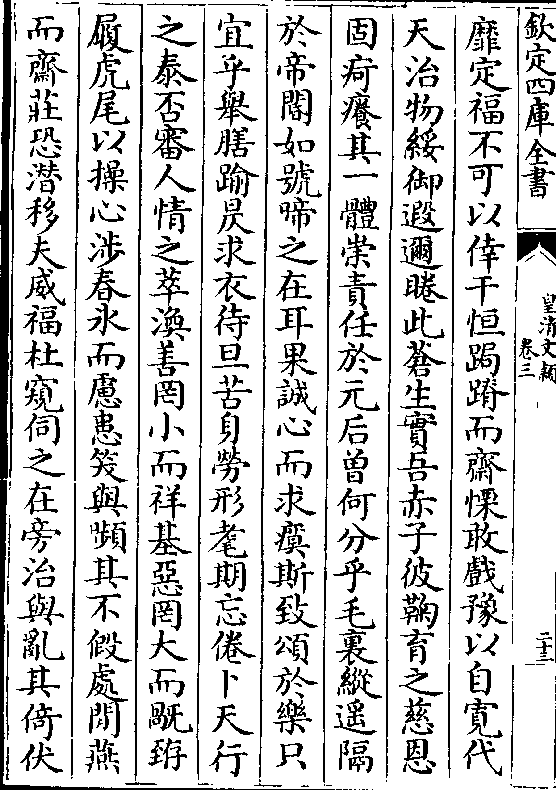 欽定四庫全書
皇清文穎
卷三
二十三
靡定福不可以倖干恒跼蹐而齋慄敢戲豫以自寬代
天治物綏御遐邇睠此蒼生實吾赤子彼鞠育之慈恩
固疴癢其一體崇責任於元后曾何分乎毛裏縱遥隔
於帝閽如號啼之在耳果誠心而求瘼斯致頌於樂只
宜乎舉膳踰昃求衣待旦苦身勞形耄期忘倦卜天行
之泰否審人情之萃渙善罔小而祥基惡罔大而眚
履虎尾以操心涉春氷而慮患笑與嚬其不假處閒燕
而齋莊恐潛移夫威福杜窺伺之在旁治與亂其倚伏